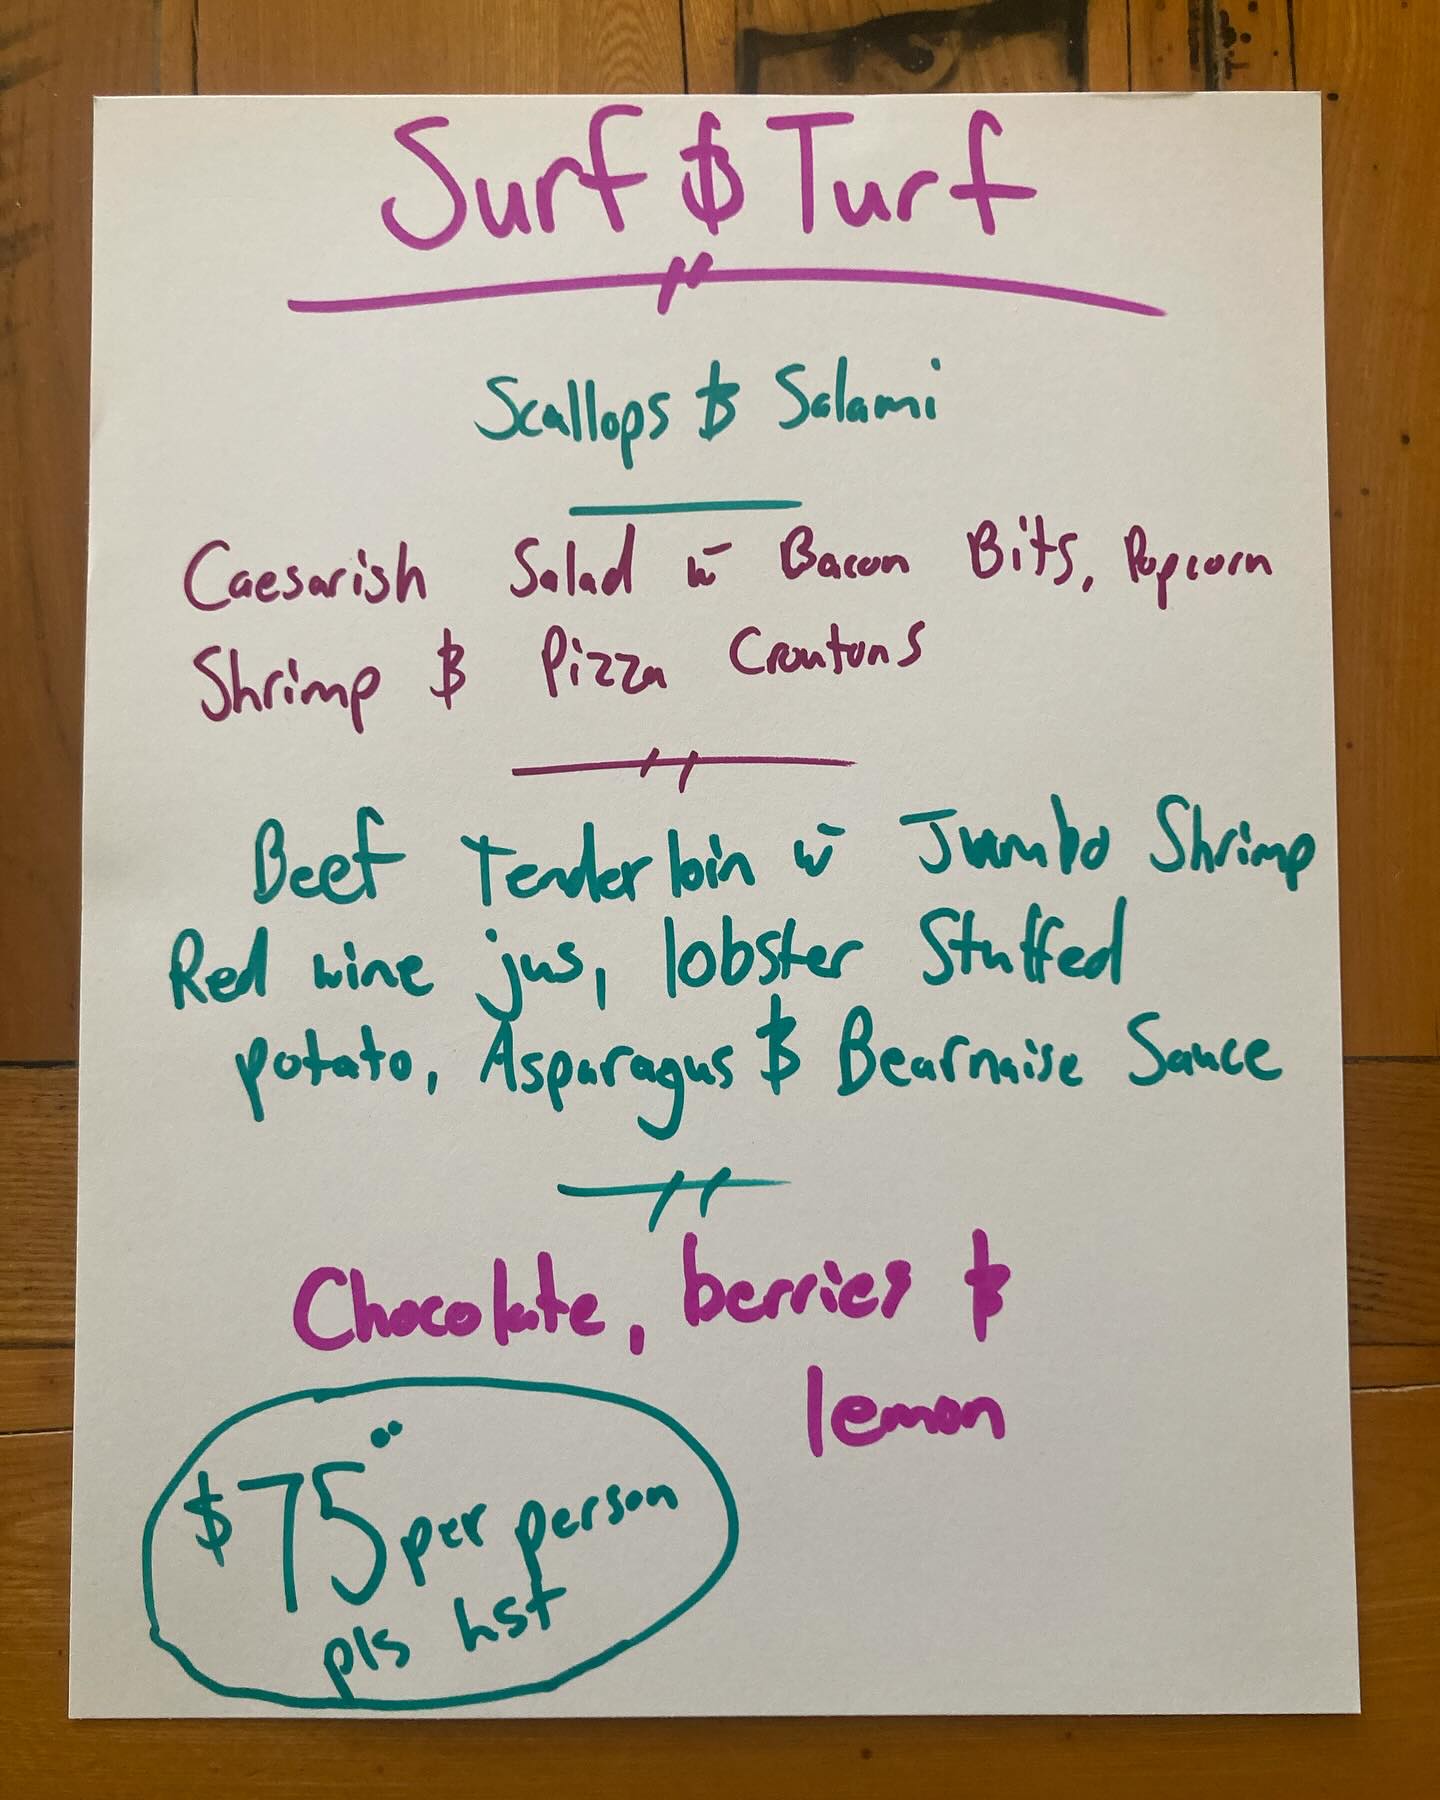 Surf & Turf
Scallops & Salami
Caesarish Salad w Bacon Bits, Popcorn
Shrimp & Pizza Croutons
Beef Tenderloin w Jumbo Shrimp
Red wine jus, lobster Stuffed
potato, Asparagus & Bearnaise Sauce
Chocolate, berries &
lemon
$75.. per person
pls hst